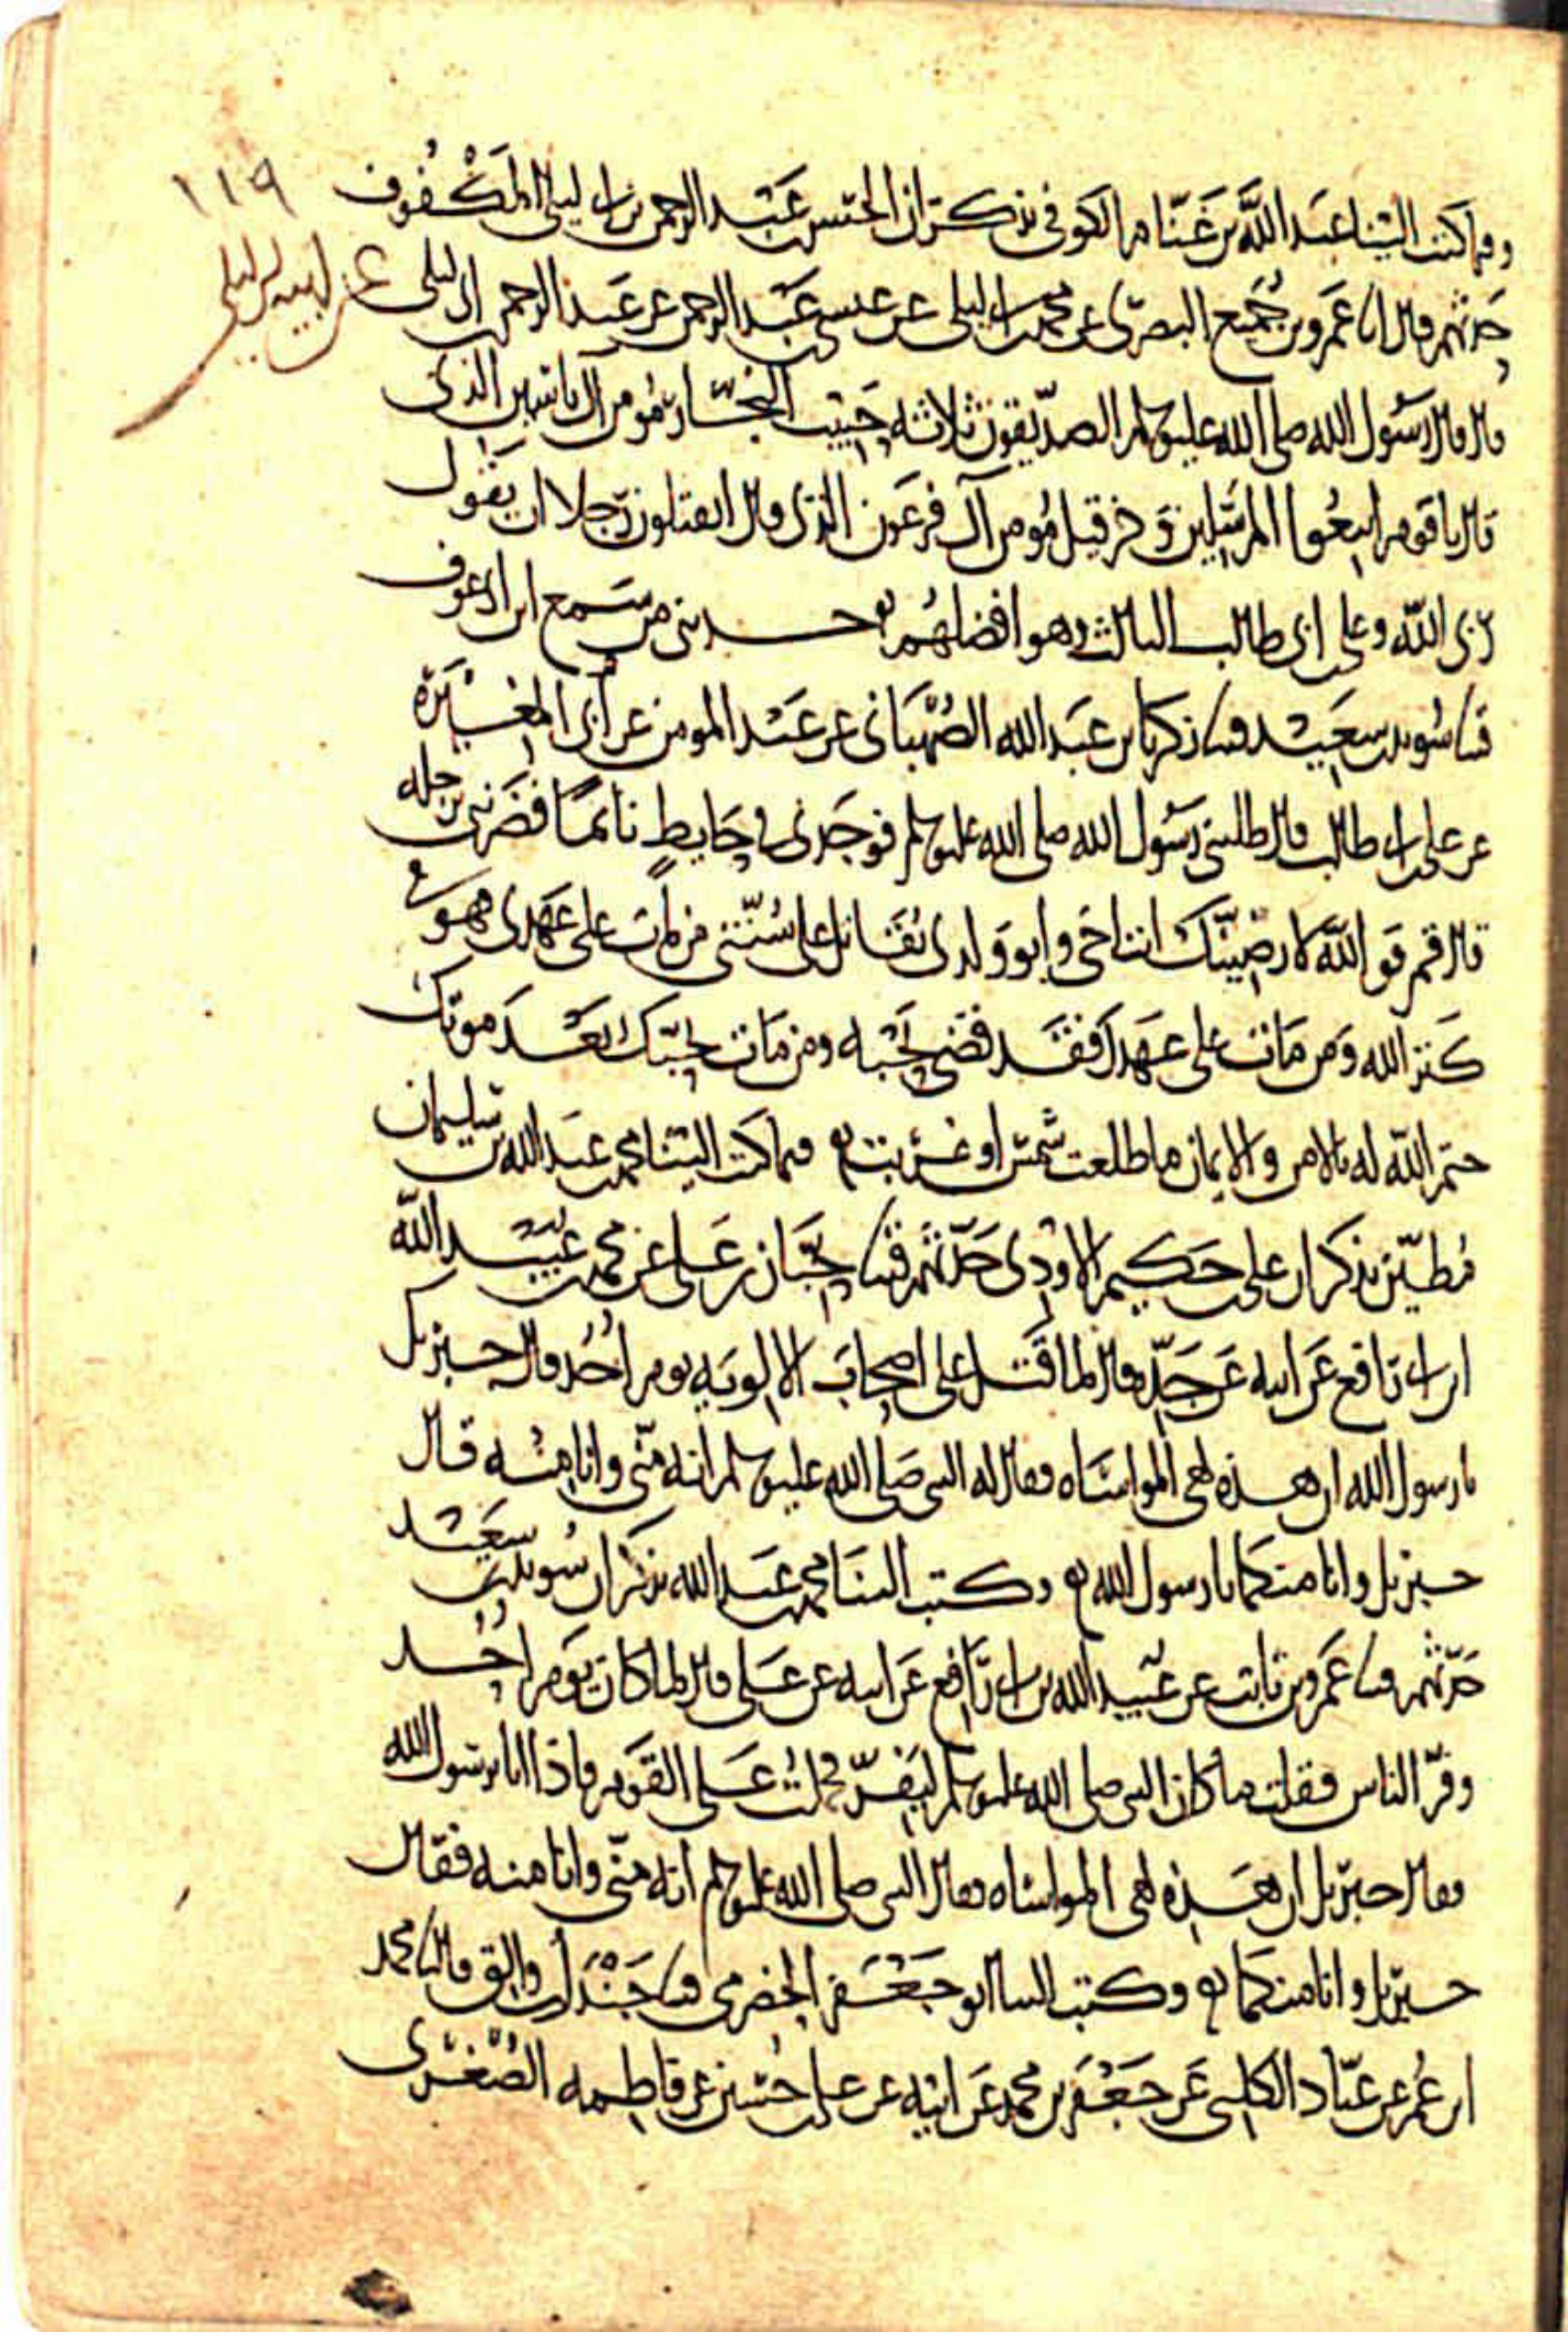 ١١٩
وفيما كتب الينا عبد الله بن غنام الكوفي يذكر ان الحسن بن عبد الرحمن بن ابي ليلى المكفوف
حدثهم قال انا عمرو بن جميع البصري عن محمد بن ابي ليلى عن عيسى بن عبد الرحمن عن عبد الرحمن بن ابي ليلى
عن ابيه ابي ليلى
قال قال رسول الله صلى الله عليه وسلم الصديقون ثلاثة حبيب النجار مؤمن آل ياسين الذي
قال يا قوم اتبعوا المرسلين وخرقيل مؤمن آل فرعون الذي قال اتقتلون رجلا ان يقول
ربي الله وعلي بن ابي طالب الثالث وهو افضلهم حدثني من سمع ابن ابي عوف
قثنا سويد بن سعيد قثنا زكريا بن عبد الله الصهباني عن عبد المومن عن ابي المغيرة
عن علي بن ابي طالب قال طلبني رسول الله صلى الله عليه وسلم فوجدني في حايط نائما فضربني برجله
قال قم فوالله لارضينك انت اخي وابو ولدي تقاتل على سنتي من مات على عهدي فهو في
كنز الله ومن مات على عهدك فقد قضى نحبه ومن مات يحبك بعد موتك
ختم الله له بالامن والايمان ما طلعت شمس او غربت وفيما كتب الينا محمد بن عبد الله بن سليمان
مطين يذكر ان علي بن حكيم الاودي حدثهم قثنا حبان بن علي عن محمد بن عبيد الله
ابن ابي رافع عن ابيه عن جده قال لما قتل علي اصحاب الالوية يوم احد قال جبريل
يا رسول الله ان هذه لهي المواساة فقال له النبي صلى الله عليه وسلم انه مني وانا منه قال
جبريل وانا منكما يا رسول الله وكتب الينا محمد بن عبد الله يذكر ان سويد بن سعيد
حدثهم قثنا عمرو بن ثابت عن عبيد الله بن ابي رافع عن ابيه عن علي قال لما كان يوم احد
وفر الناس فقلت ما كان النبي صلى الله عليه وسلم ليفر فحملت على القوم فاذا انا برسول الله
فقال جبريل ان هذه لهي المواساة فقال النبي صلى الله عليه وسلم انه مني وانا منه فقال
جبريل وانا منكما وكتب الينا ابو جعفر الحضرمي قثنا جندل بن والق قال نا محمد
ابن عمر عن عباد الكلبي عن جعفر بن محمد عن ابيه عن علي بن حسين عن فاطمه الصغرى